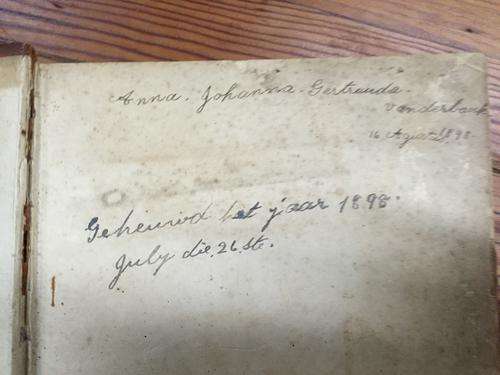 Anna. Johanna. Gertruuda.
vanderbank
16 1898
Geheurod het jaar 1898.
July die. 26. ste.